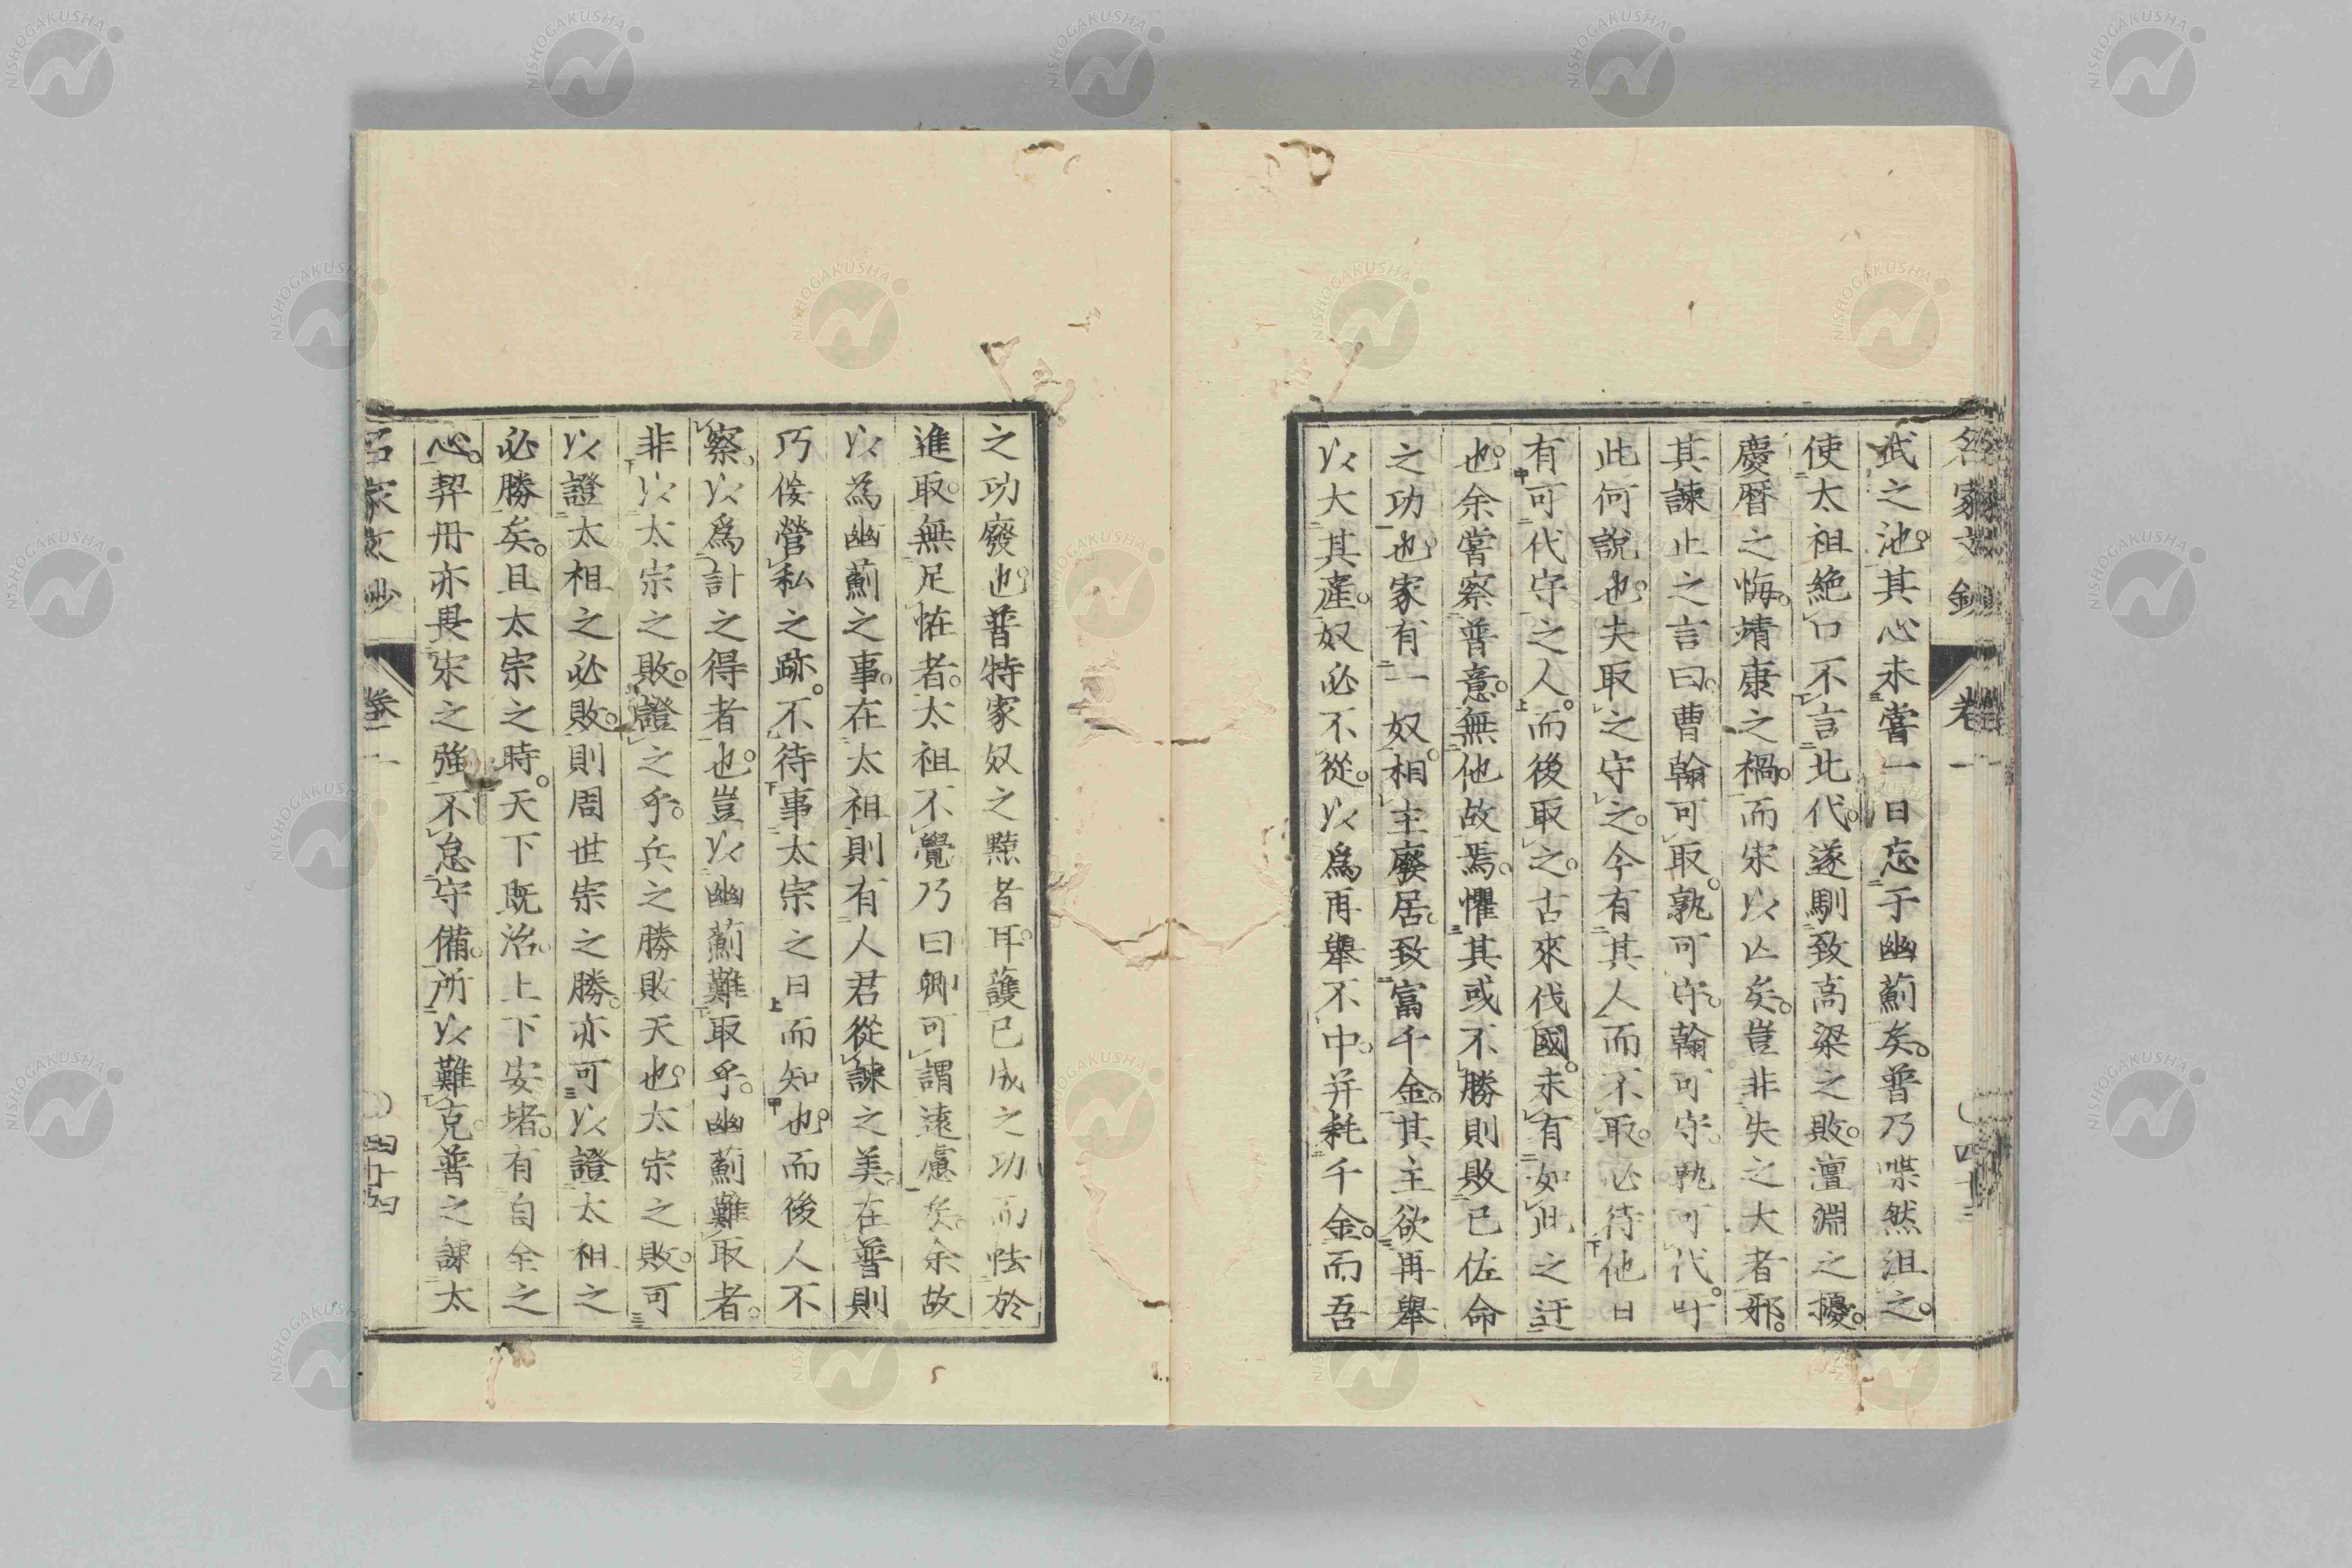 名家文鈔 卷一
武之池。其心未嘗一日忘于幽薊矣。普乃喋然沮之。
使太祖絶口不言北代。遂馴致高梁之敗。澶淵之擾。
慶曆之悔。靖康之禍。而宋以亡矣。豈非失之大者邪。
其諫止之言曰。曹翰可取。孰可守。翰可守。孰可代。吁
此何説也。夫取之守之。今有其人而不取。必待他日
有可代守之人。而後取之。古來伐國。未有如此之迂
也。余嘗察普意。無他故焉。懼其或不勝則敗已佐命
之功也。家有一奴。相主廢居。致富千金。其主欲再舉
以大其產。奴必不從。以爲再舉不中。并耗千金。而吾
之功廢也。普特家奴之黠者耳。護已成之功而怯於
進取。無足恠者。太祖不覺乃曰卿可謂遠慮矣。余故
以為幽薊之事。在太祖則有人君從諫之美。在普則
巧佞營私之跡。不待事太宗之日而知也。而後人不
察。以爲計之得者也。豈以幽薊難取乎。幽薊難取者。
非以太宗之敗。證之乎。兵之勝敗天也。太宗之敗。可
以證太祖之必敗。則周世宗之勝。亦可以證太祖之
必勝矣。且太宗之時。天下既治。上下安堵。有自全之
心。契丹亦畏宋之強。不怠守備。所以難克。普之諫太
名家文鈔 卷一 四十四